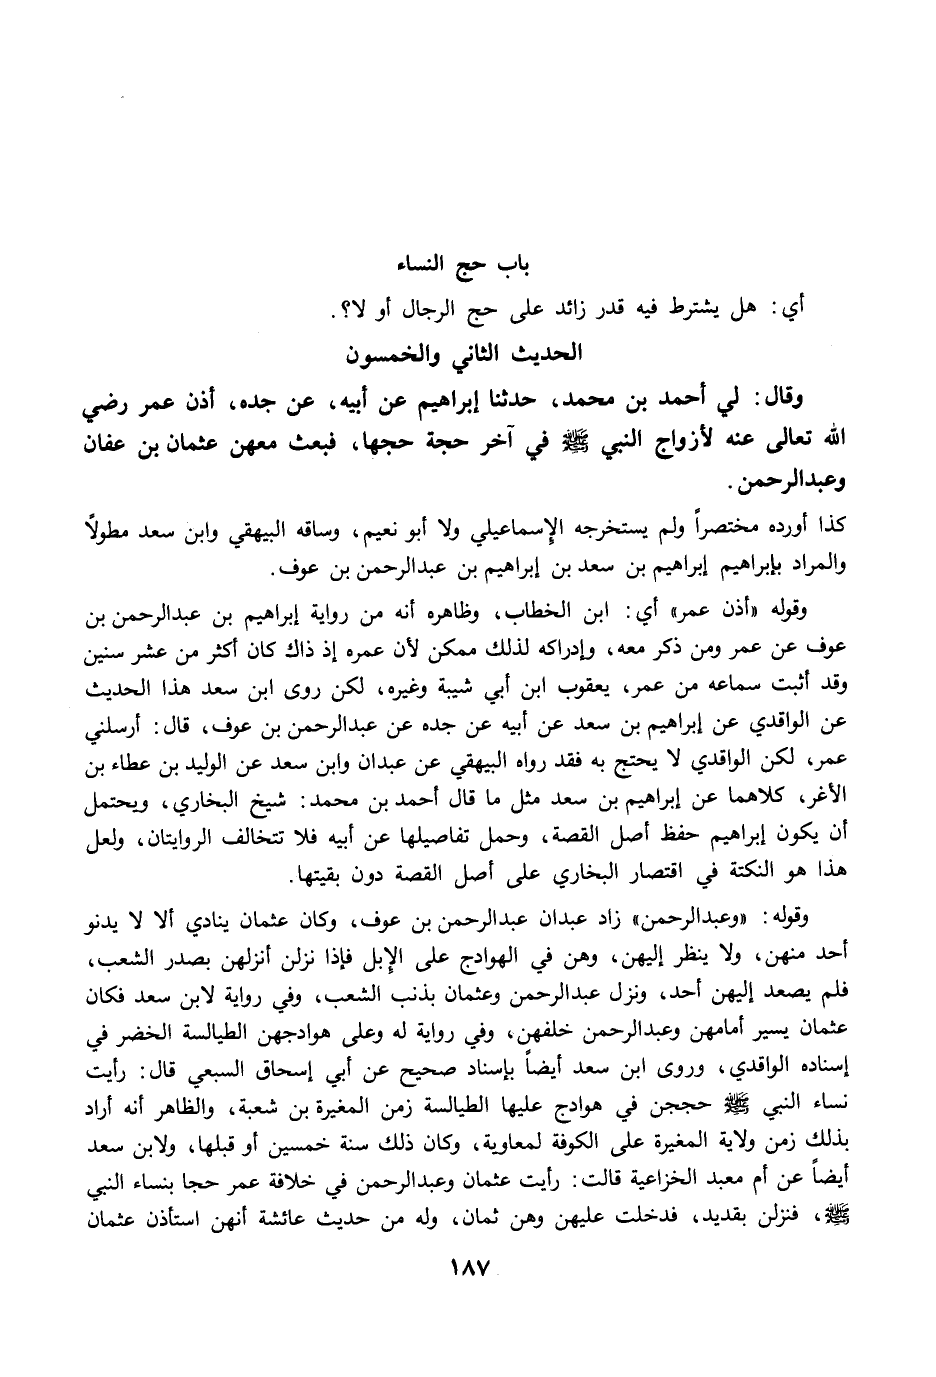 باب حج النساء
أي: هل يشترط فيه قدر زائد على حج الرجال أو لا؟.
الحديث الثاني والخمسون
وقال: لي أحمد بن محمد، حدثنا إبراهيم عن أبيه، عن جده، أذن عمر رضي
الله تعالى عنه لأزواج النبي ﷺ في آخر حجة حجها، فبعث معهن عثمان بن عفان
وعبدالرحمن.
كذا أورده مختصراً ولم يستخرجه الإسماعيلي ولا أبو نعيم، وساقه البيهقي وابن سعد مطولاً
والمراد بإبراهيم إبراهيم بن سعد بن إبراهيم بن عبدالرحمن بن عوف.
وقوله «أذن عمر» أي: ابن الخطاب، وظاهره أنه من رواية إبراهيم بن عبدالرحمن بن
عوف عن عمر ومن ذكر معه، وإدراكه لذلك ممكن لأن عمره إذ ذاك كان أكثر من عشر سنين
وقد أثبت سماعه من عمر، يعقوب ابن أبي شيبة وغيره، لكن روى ابن سعد هذا الحديث
عن الواقدي عن إبراهيم بن سعد عن أبيه عن جده عن عبدالرحمن بن عوف، قال: أرسلني
عمر، لكن الواقدي لا يحتج به فقد رواه البيهقي عن عبدان وابن سعد عن الوليد بن عطاء بن
الأغر، كلاهما عن إبراهيم بن سعد مثل ما قال أحمد بن محمد: شيخ البخاري، ويحتمل
أن يكون إبراهيم حفظ أصل القصة، وحمل تفاصيلها عن أبيه فلا تتخالف الروايتان، ولعل
هذا هو النكتة في اقتصار البخاري على أصل القصة دون بقيتها.
وقوله: «وعبدالرحمن» زاد عبدان عبدالرحمن بن عوف، وكان عثمان ينادي ألا لا يدنو
أحد منهن، ولا ينظر إليهن، وهن في الهوادج على الإبل فإذا نزلن أنزلهن بصدر الشعب،
فلم يصعد إليهن أحد، ونزل عبدالرحمن وعثمان بذنب الشعب، وفي رواية لابن سعد فكان
عثمان يسير أمامهن وعبدالرحمن خلفهن، وفي رواية له وعلى هوادجهن الطيالسة الخضر في
إسناده الواقدي، وروى ابن سعد أيضاً بإسناد صحيح عن أبي إسحاق السبعي قال: رأيت
نساء النبي ﷺ حججن في هوادج عليها الطيالسة زمن المغيرة بن شعبة، والظاهر أنه أراد
بذلك زمن ولاية المغيرة على الكوفة لمعاوية، وكان ذلك سنة خمسين أو قبلها، ولابن سعد
أيضاً عن أم معبد الخزاعية قالت: رأيت عثمان وعبدالرحمن في خلافة عمر حجا بنساء النبي
ﷺ، فنزلن بقديد، فدخلت عليهن وهن ثمان، وله من حديث عائشة أنهن استأذن عثمان
١٨٧